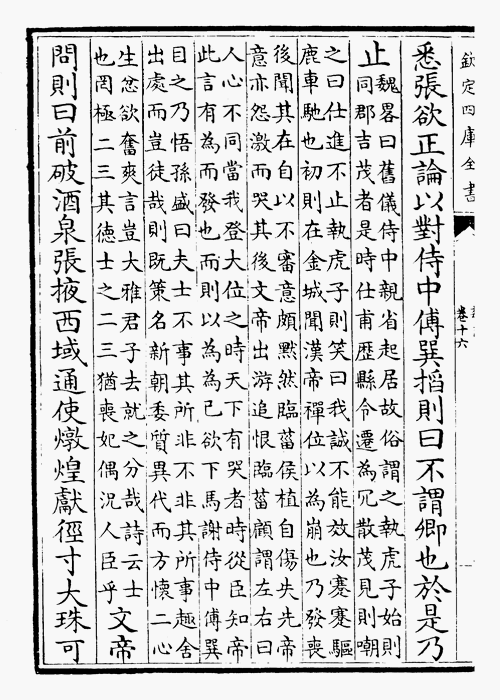 欽定四庫全書
卷十六
悉張欲正論以對侍中傅巽掐則曰不謂卿也於是乃
止
魏畧曰舊儀侍中親省起居故俗謂之執虎子始則
同郡吉茂者是時仕甫歴縣令遷為冗散茂見則嘲
之曰仕進不止執虎子則笑曰我誠不能效汝蹇蹇驅
鹿車馳也初則在金城聞漢帝禪位以為崩也乃發喪
後聞其在自以不審意頗黙然臨菑侯植自傷失先帝
意亦怨激而哭其後文帝出游追恨臨菑顧謂左右曰
人心不同當我登大位之時天下有哭者時從臣知帝
此言有為而發也而則以為為己欲下馬謝侍中傅巽
目之乃悟孫盛曰夫士不事其所非不非其所事趣舍
出處而豈徒哉則既策名新朝委質異代而方懷二心
生忿欲奮爽言豈大雅君子去就之分哉詩云士
也罔極二三其德士之二三猶喪妃偶況人臣乎
文帝
問則曰前破酒泉張掖西域通使燉煌獻徑寸大珠可